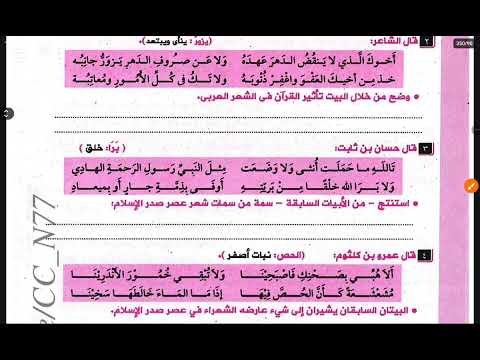 ٢ قال الشاعر: (يزور: ينأى ويبتعد).
أَخوكَ الَّذي لا يَنقُضُ الدَهرَ عَهدَهُ وَلا عَن صُروفِ الدَهرِ يَزوَرُّ جانِبُه
خذ مِن أَخيكَ العَفوَ وَاِغفِر ذُنوبَهُ وَلا تَكُ في كُلِّ الأُمورِ تُعاتِبُه
وضح من خلال البيت تأثير القرآن فى الشعر العربى.
٣ قال حسان بن ثابت: (بَرَا: خلق)
تَاللَهِ ما حَمَلَت أُنثى وَلا وَضَعَت مِثلَ النَبِيِّ رَسولِ الرَحمَةِ الهادي
وَلا بَرَا اللَه خلقًا مِنْ بَرِيَّتِهِ أَوفى بِذِمَّةِ جارٍ أَو بِميعادِ
استنتج - من الأبيات السابقة - سمة من سمات شعر عصر صدر الإسلام:
٤ قال عمرو بن كلثوم: (الحص: نبات أصفر)
أَلا هُبِّي بِصَحْنِكِ فَاصْبَحِيْنَا وَلاَ تُبْقِي خُمُوْرَ الأَنْدَرِيْنَا
مُشَعْشَعَةً كَأَنَّ الحُصَّ فِيْهَا إِذَا مَا المَاءُ خَالَطَهَا سَخِيْنَا
البيتان السابقان يشيران إلى شيء عارضه الشعراء في عصر صدر الإسلام.
/CC_N77
350/90